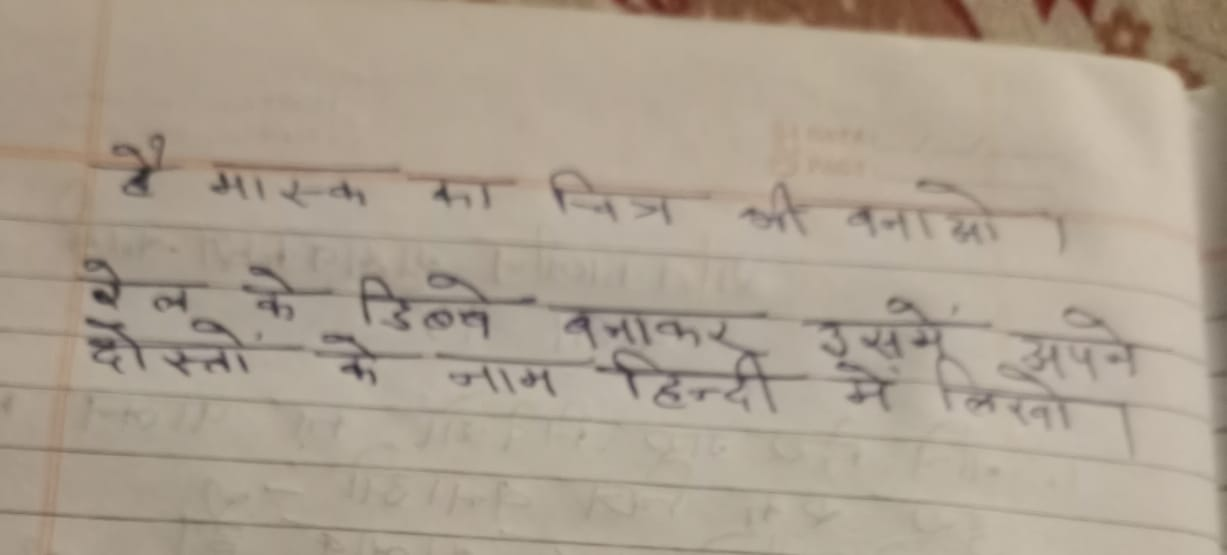 है मास्क का चित्र भी बनाओ।
रेल के डिब्बे बनाकर उसमें अपने
दोस्तों के नाम हिन्दी में लिखो।